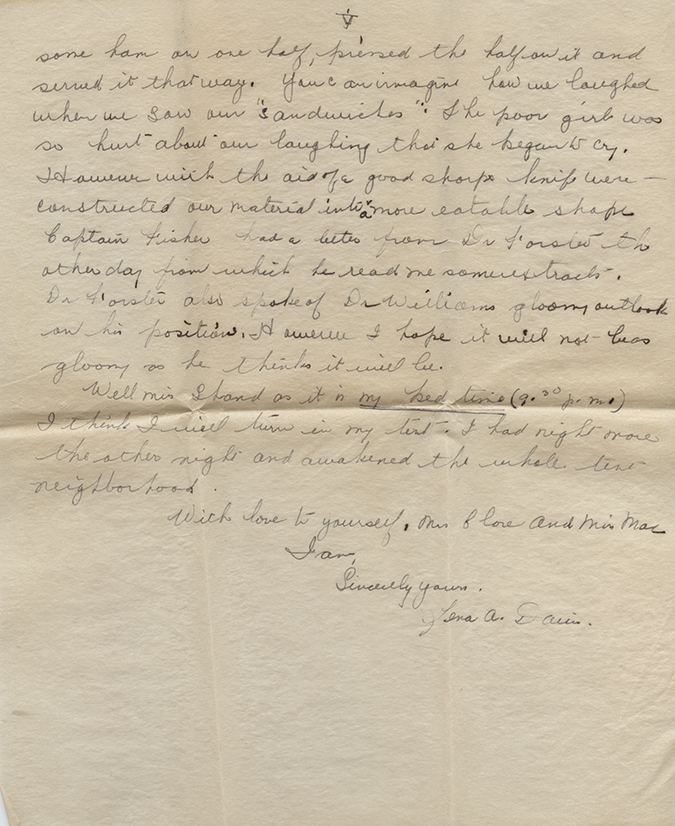 V
some ham on one half, pressed the half on it and
served it that way. You can imagine how we laughed
when we saw our "sandwiches". The poor girl was
so hurt about our laughing that she began to cry.
However with the aid of a good sharp knife we re-
constructed our material into a more eatable shape
Captain Fisher had a letter from Dr Forster the
other day from which he read me some extracts.
Dr Forster also spoke of Dr Williams gloomy outlook
on his position. However I hope it will not be as
gloomy as he thinks it will be.
Well miss Shand as it is my bed time (9.30 p.m.)
I think I will turn in my tent. I had night mare
the other night and awakened the whole tent
neighborhood.
With love to yourself, Mrs Clore and Miss Mac
I am,
Sincerely yours.
Lena A. Davis.